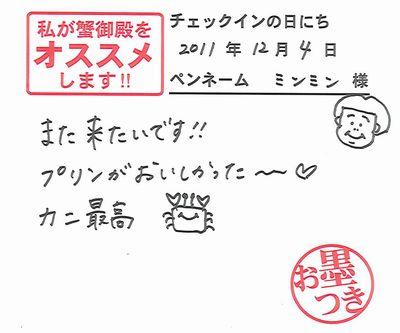 私が蟹御殿を
オススメ
します!!
チェックインの日にち
2011 年 12 月 4 日
ペンネーム ミンミン 様
また来たいです!!
プリンがおいしかった〜♡
カニ最高
お墨つき